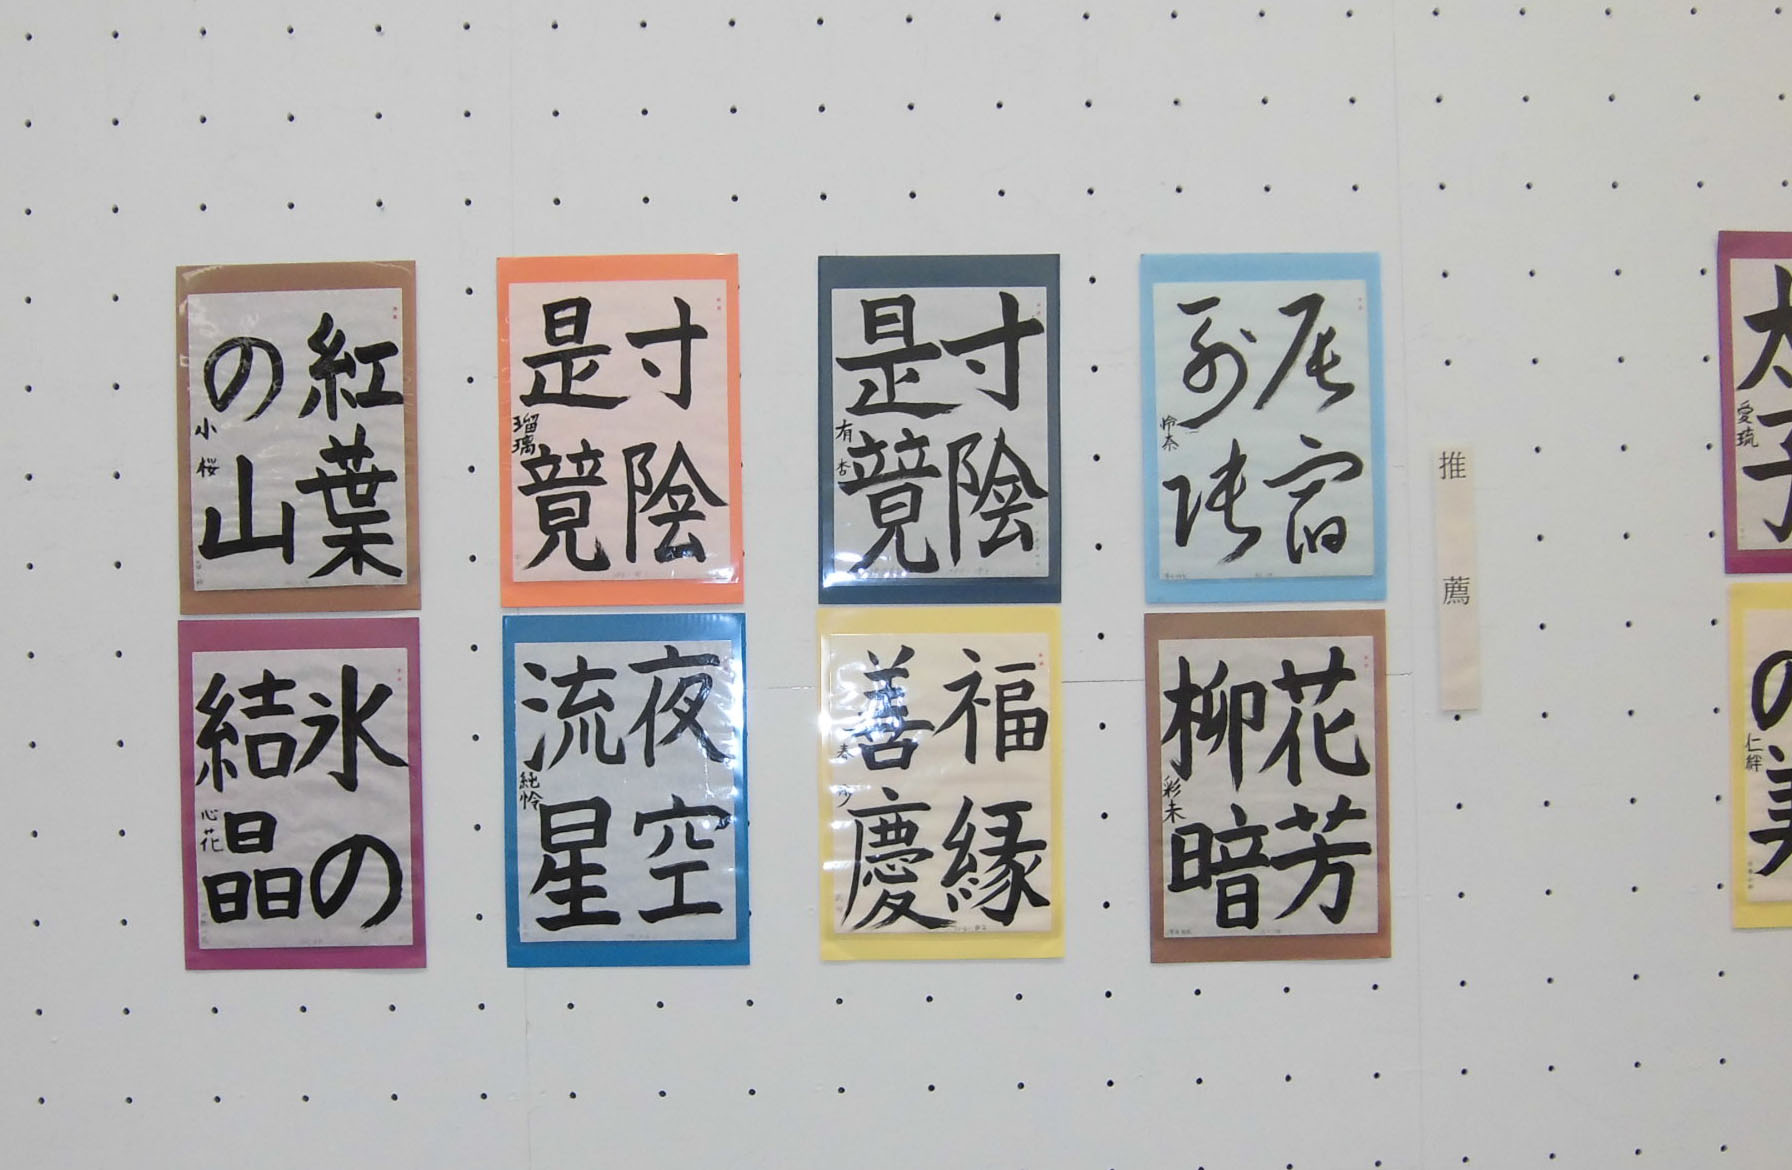 愛琉
の
仁絆
推薦
辰宿
列張
怜奈
花芳
柳暗
彩未
寸陰
是競
有杏
福縁
善慶
寸陰
是競
瑠璃
夜空
流星
純怜
紅葉
の山
小桜
氷の
結晶
心花